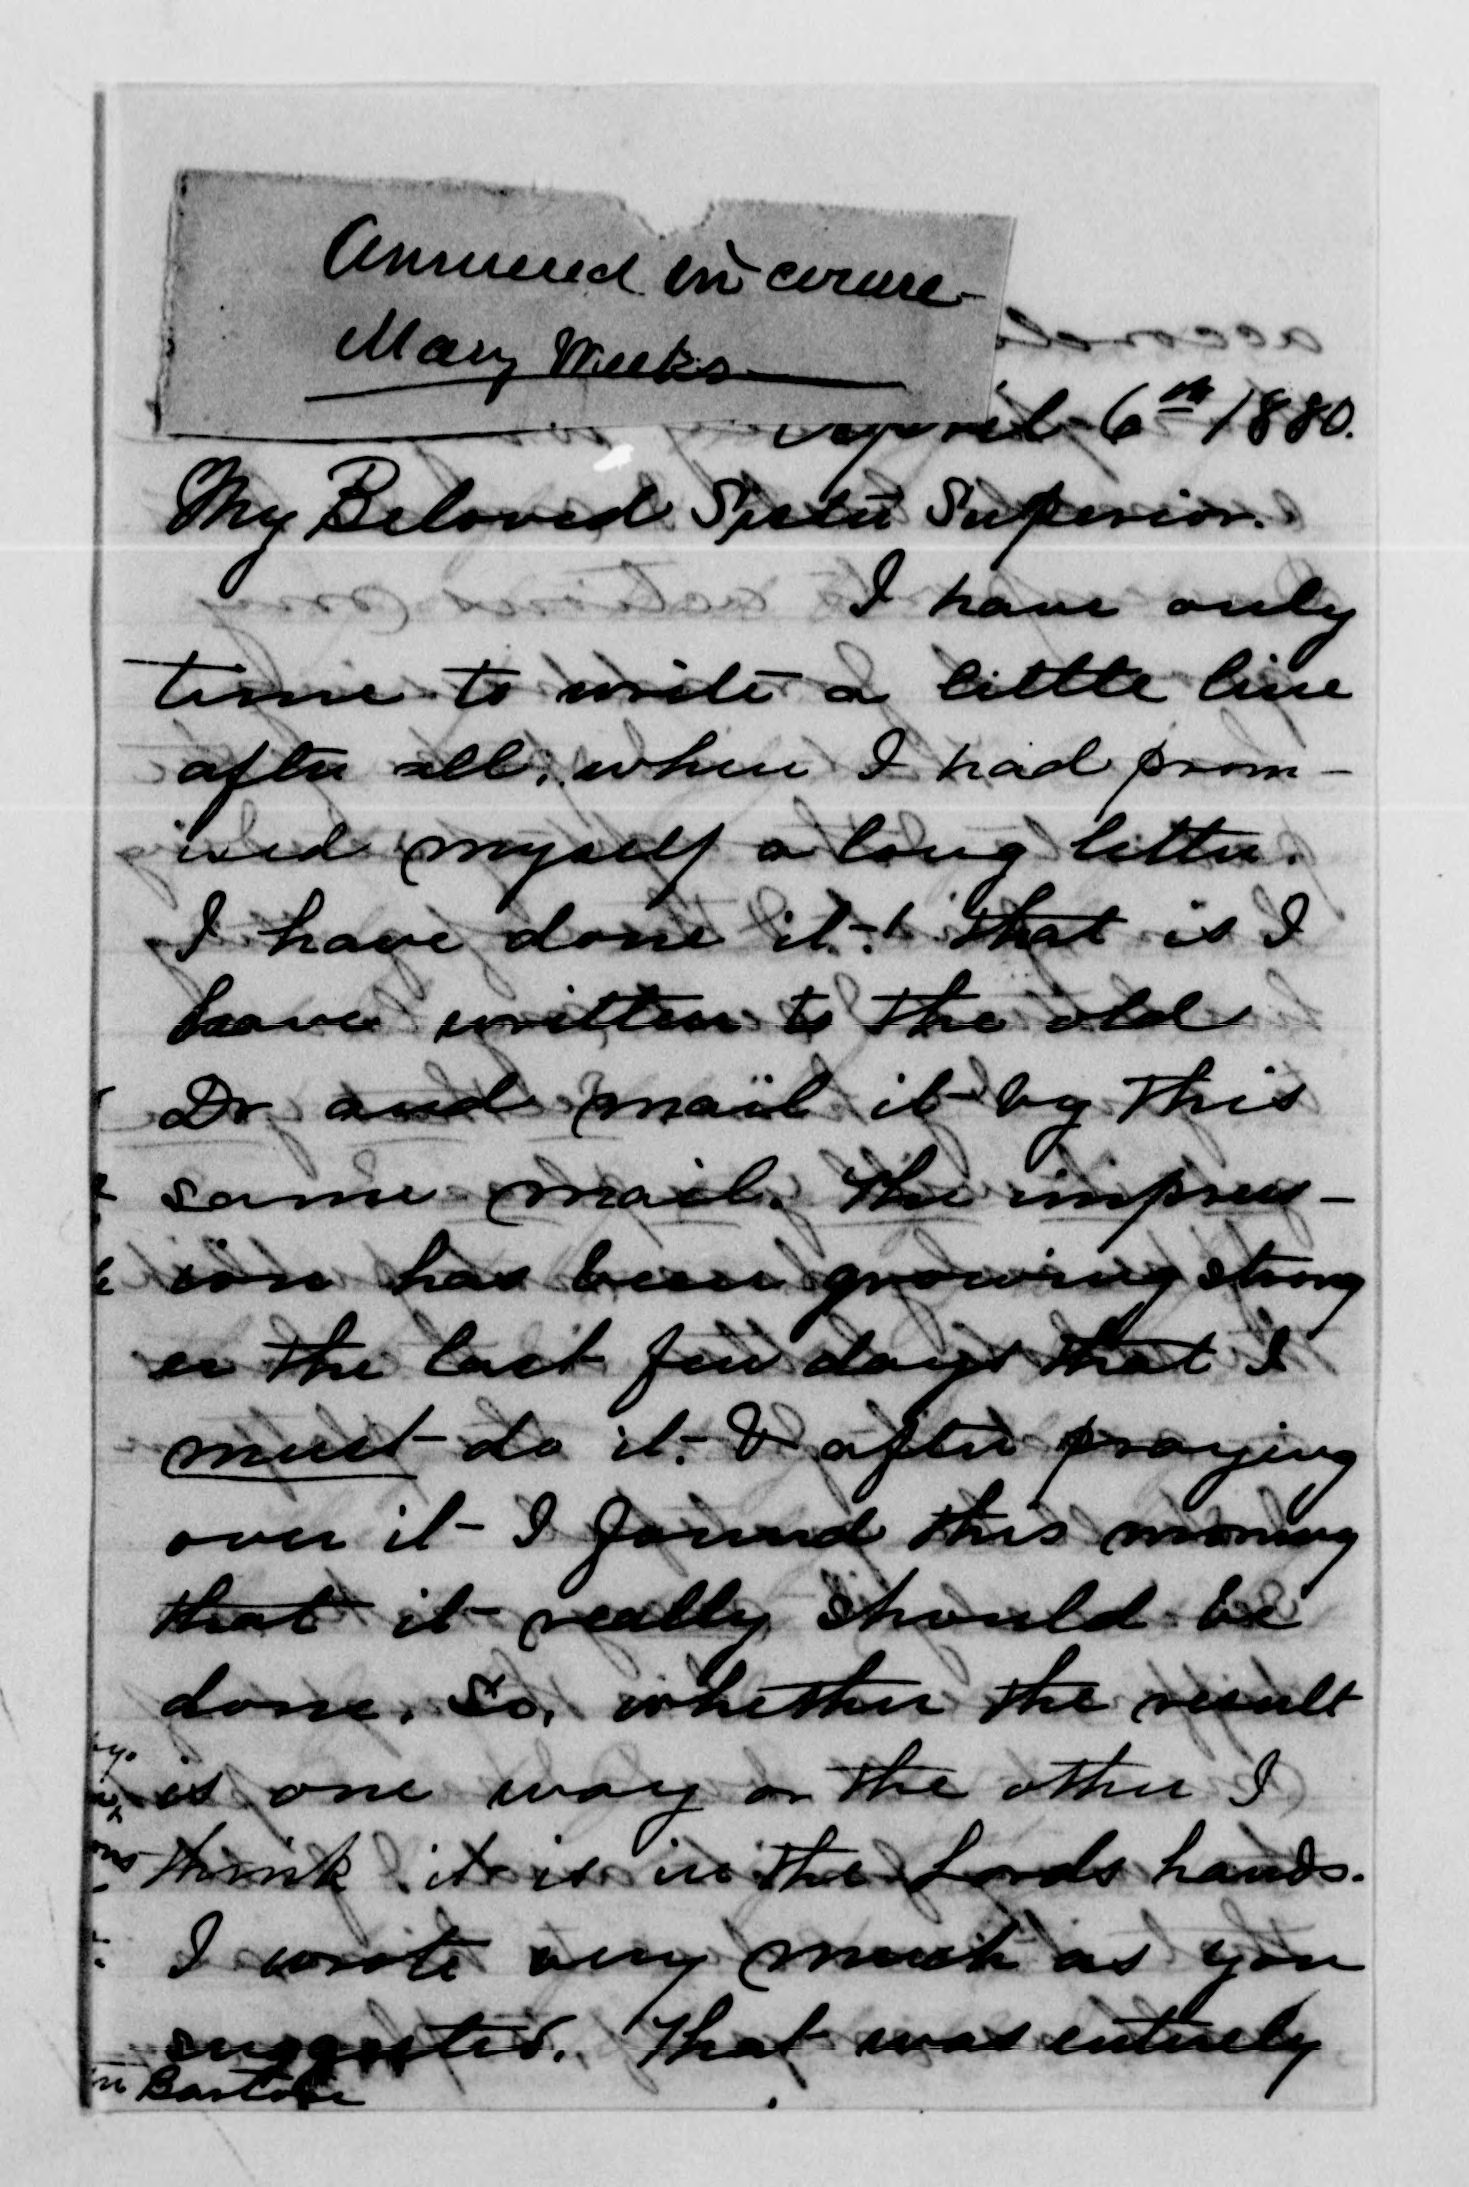 Answered in course
Mary Weeks
April 6th 1880.
My Beloved Sister Superior.
I have only
time to write a little line
after all; when I had prom-
ised myself a long letter.
I have done it! that is I
have written to the old
Dr and mail it by this
same mail. The impres-
sion has been growing strong
er the last few days that I
must do it. & after praying
over it I found this morning
that it really should be
done. So, whether the result
is one way or the other I
think it is in the Lords hands.
I wrote very much as you
suggested. That was entirely